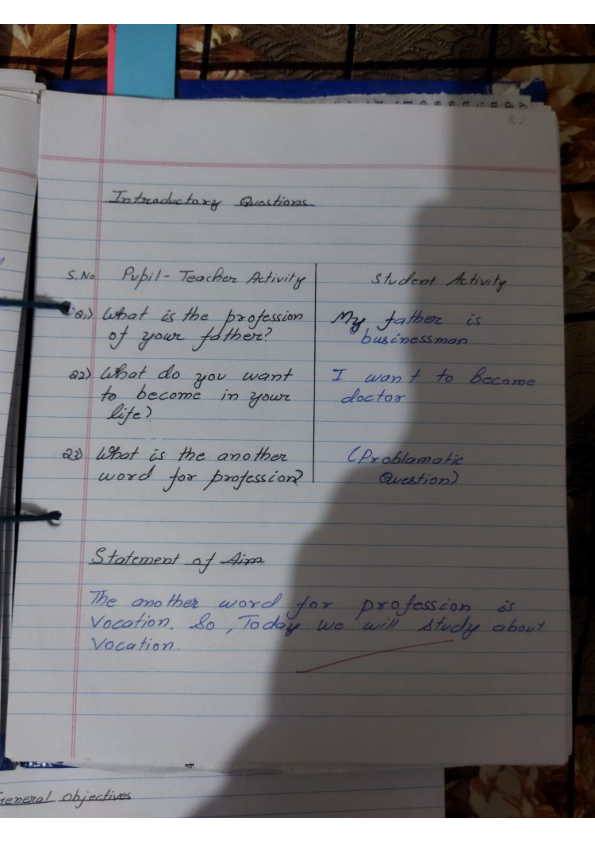 Introductory Questions
S.No. Pupil-Teacher Activity Student Activity
Q1) What is the profession My father is
of your father? businessman
Q2) What do you want I want to become
to become in your doctor
life?
Q3) What is the another (Problamatic
word for profession? Question)
Statement of Aim
The another word for profession is
Vocation. So, Today we will study about
Vocation
General Objectives